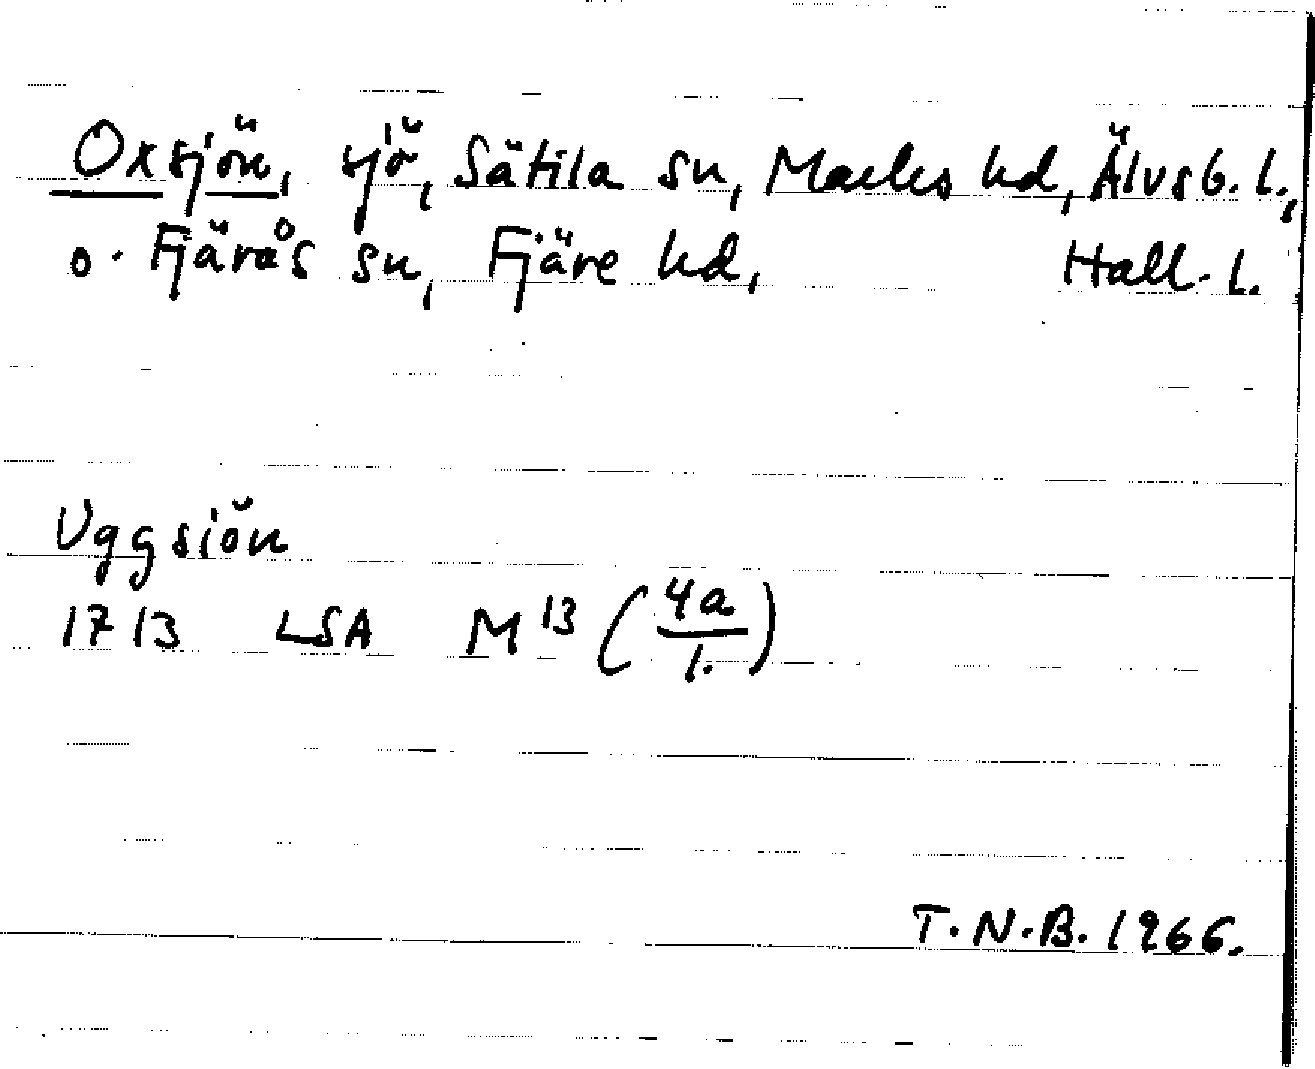 Oxsjön, sjö, Sätila sn, Marks hd, Älvsb. l.,
o. Fjärås sn, Fjäre hd, Hall. l.
Uggsiön
1713 LSA M 13 (4a/1.)
T.N.B. 1966.